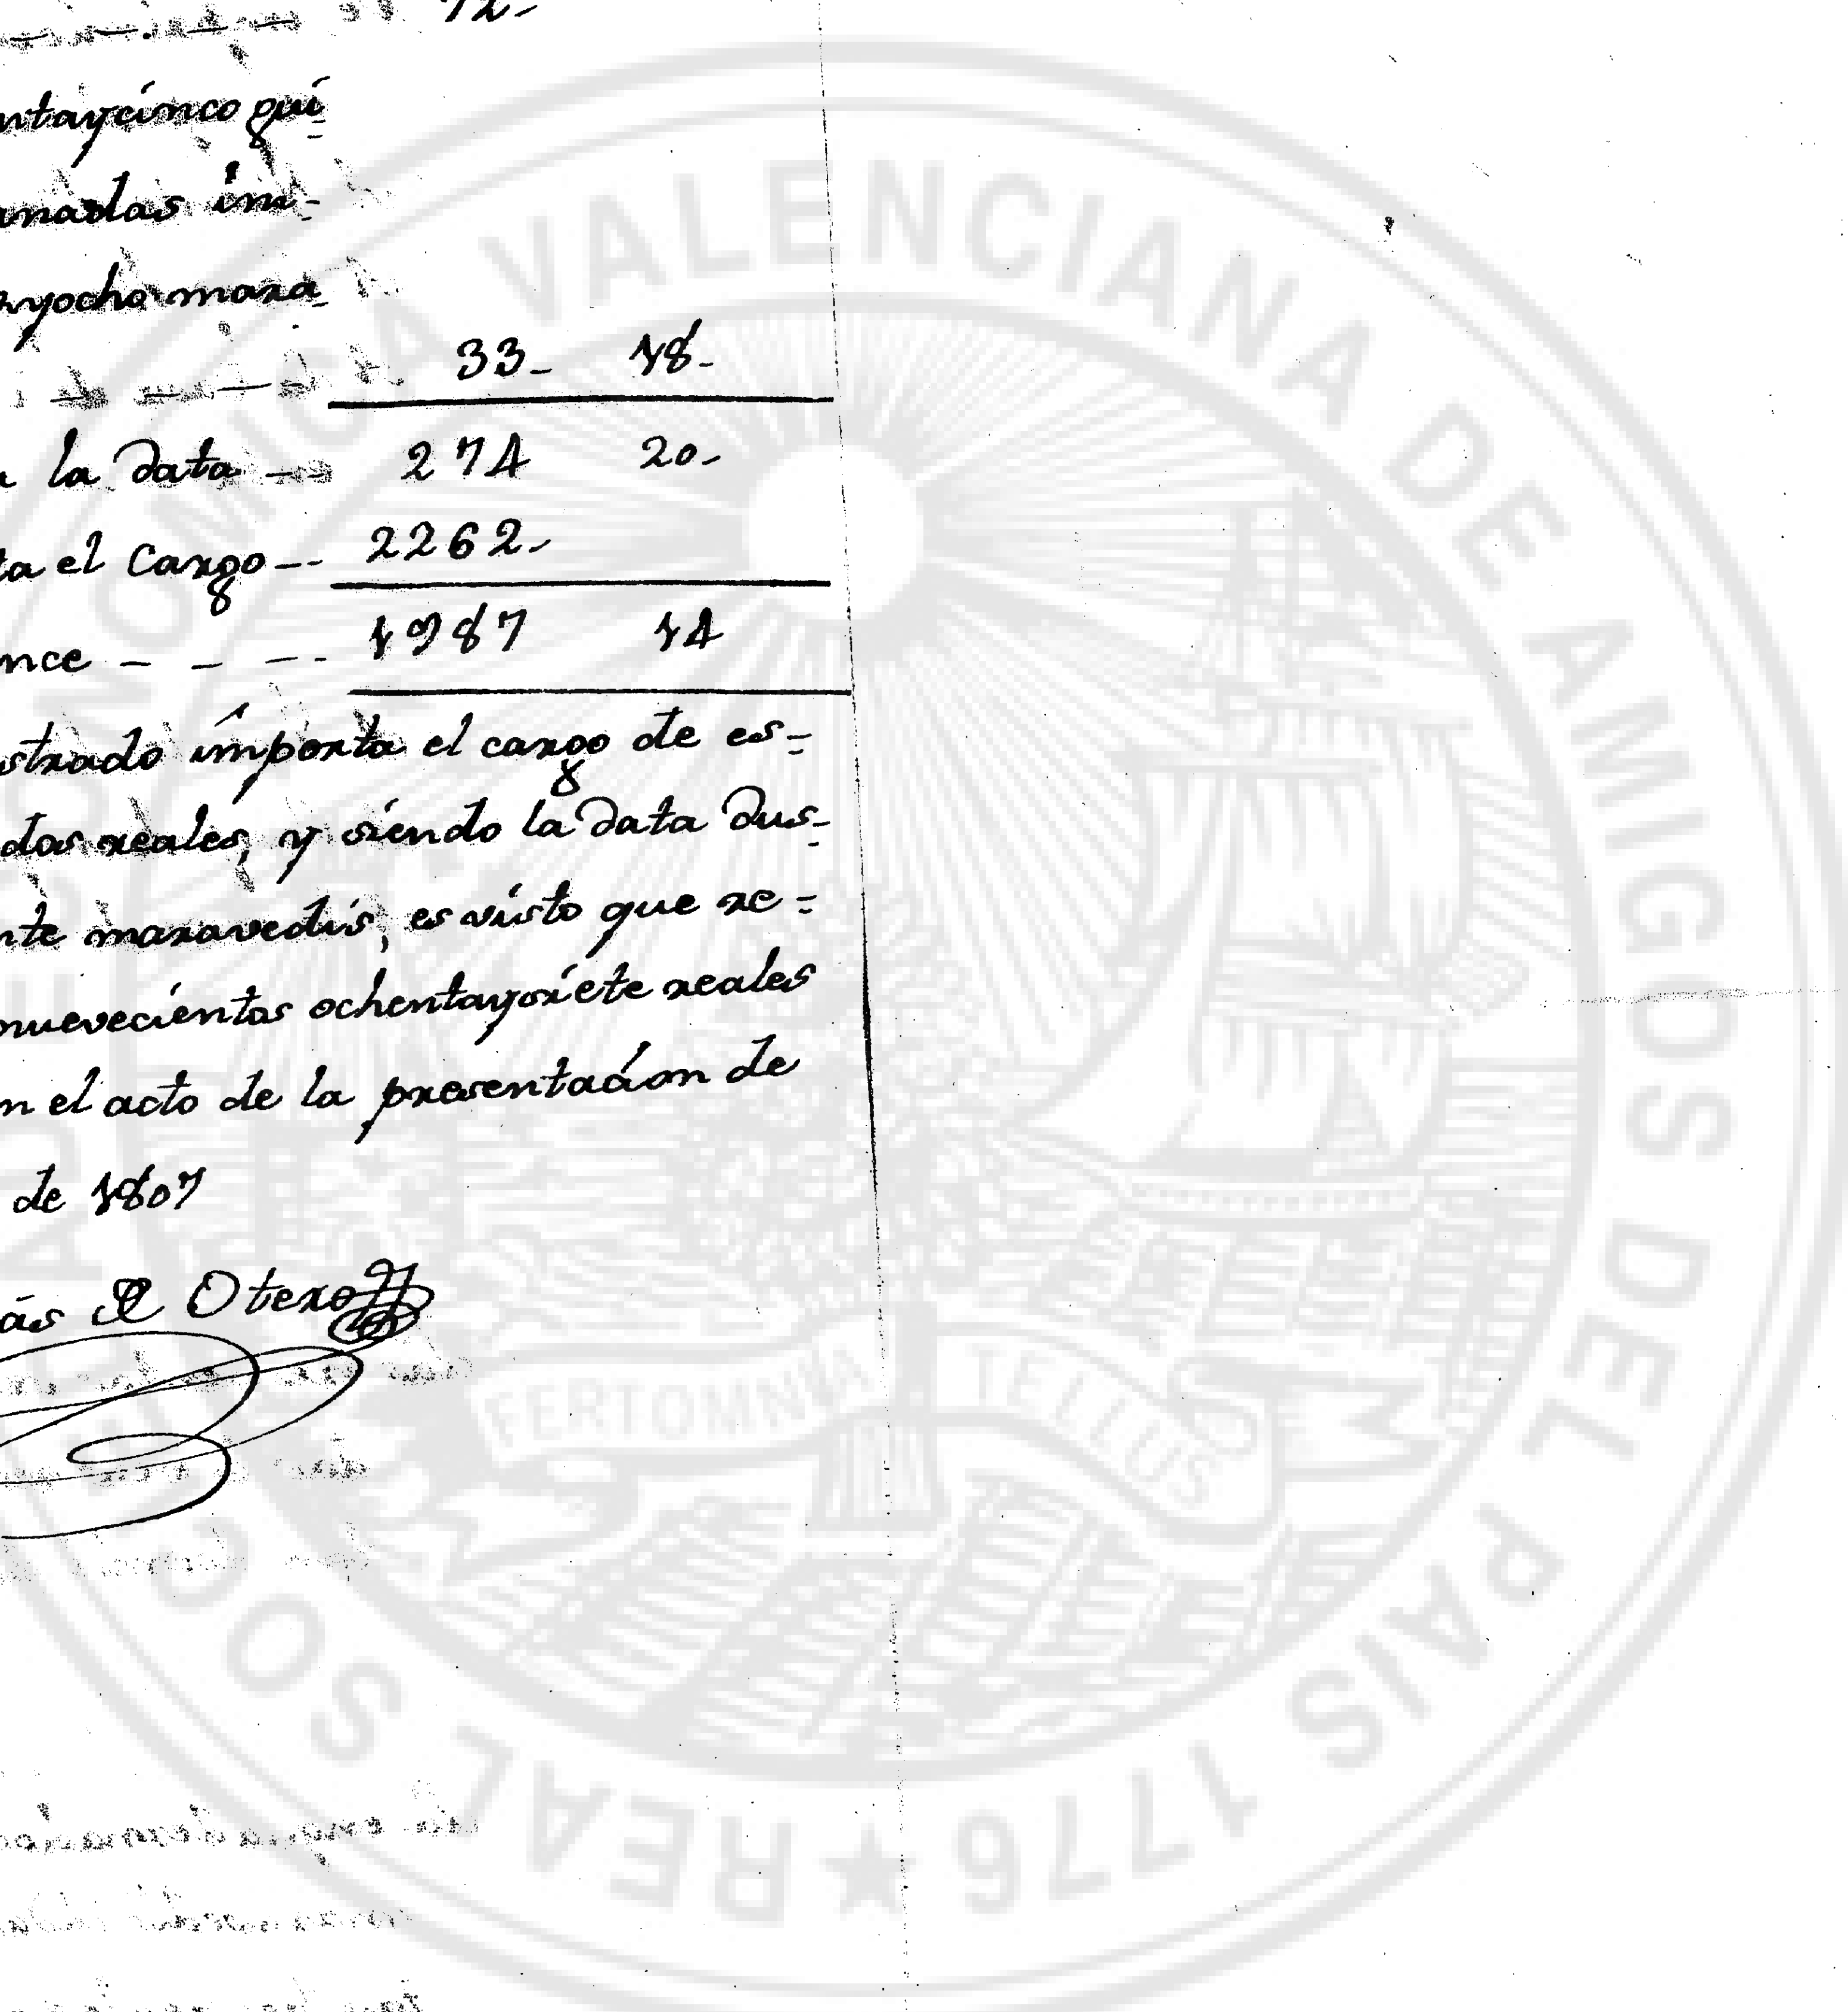 12-
ntaycinco qui-
anadas im-
yocho mara-
33- 18-
la data -- 274 20-
ta el Cargo -- 2262-
nce - - -- 1987 14
strado importa el cargo de es-
dos reales, y siendo la data dus-
nte maravedis, es visto que re-
nuevecientos ochentaysiete reales
n el acto de la presentacion de
de 1807
ás R Otero
REAL SOC ECONOMICA VALENCIANA DE AMIGOS DEL PAIS 1776